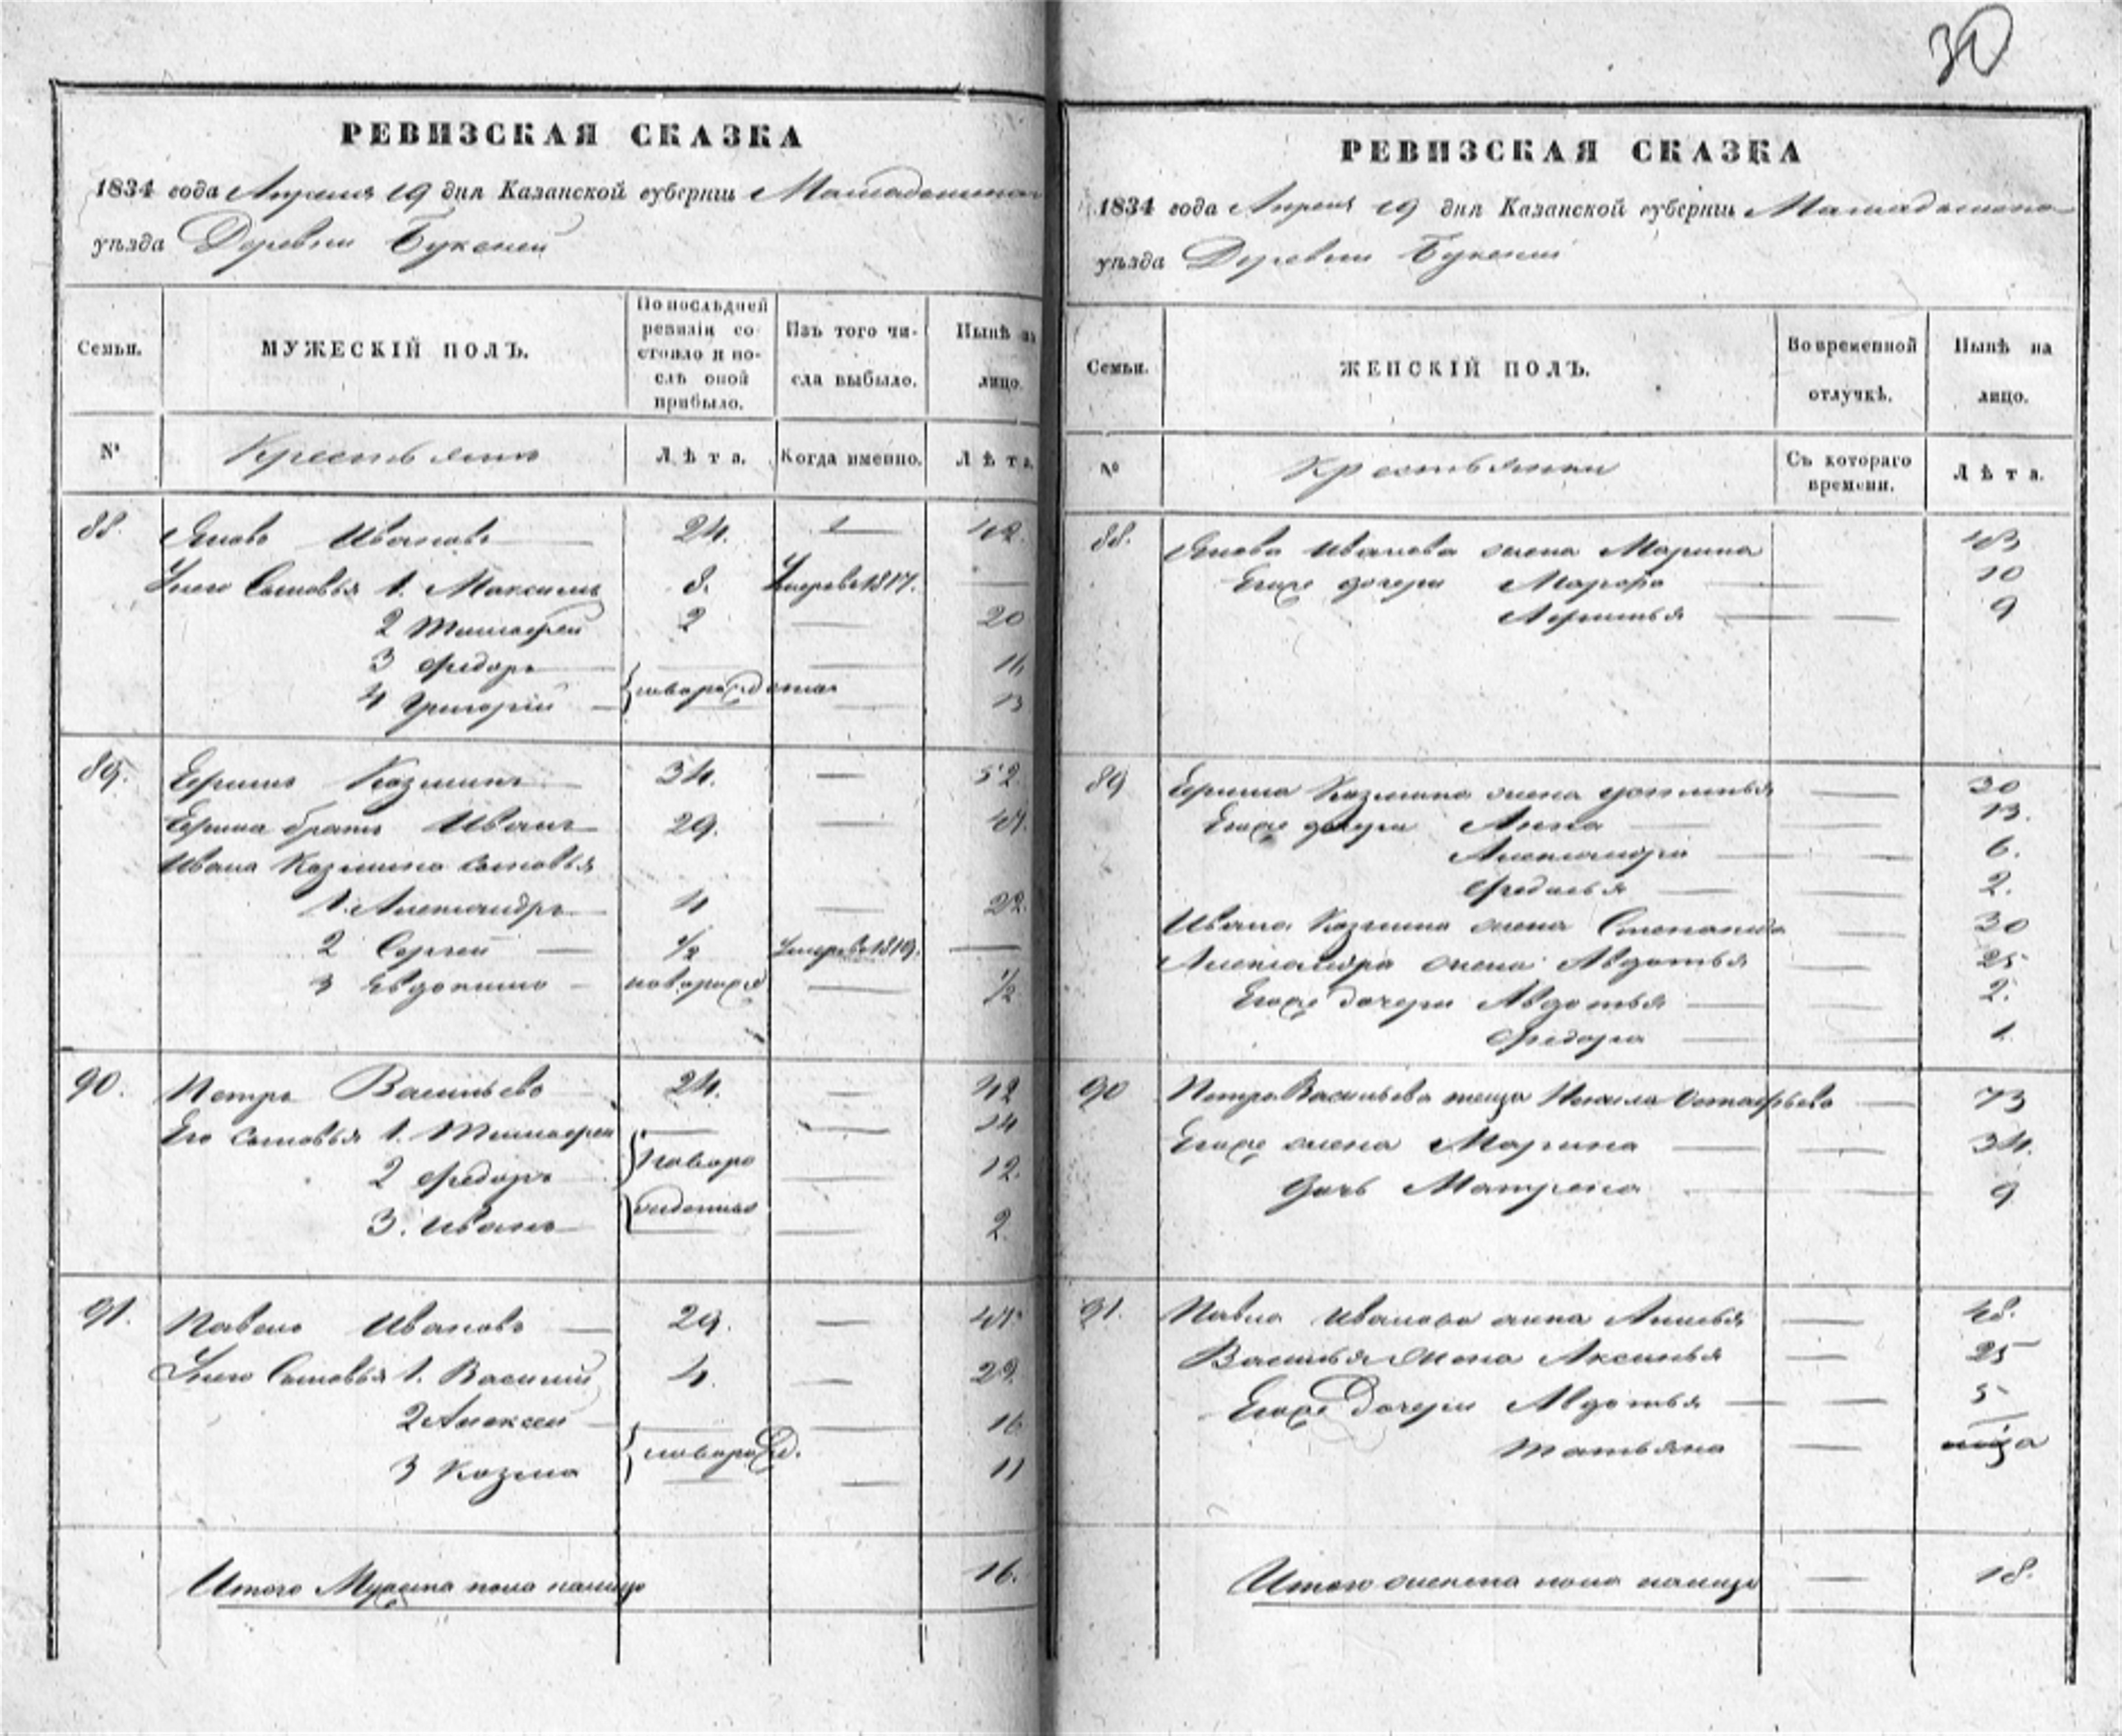 30
РЕВИЗСКАЯ СКАЗКА
1834 года Апреля 19 дня Казанской губерніи
уѣзда Деревни Буксней
Семьи.
МУЖЕСКІЙ ПОЛЪ.
По послѣдней ревизіи состояло и послѣ оной прибыло.
Изъ того числа выбыло.
Нынѣ на лицо.
№
Крестьяне
Лѣта.
Когда именно.
Лѣта
88. Яковъ Ивановъ — 24. — 42.
Сыновья 1. Максимъ 8. 1817. —
2 Тимофей 2 — 20
3 Федоръ — — 16
4 Григорій — новорожденные — 13
89. Ефимъ Козминъ — 34. — 52.
Ефима братъ Иванъ — 29. — 47.
Ивана Козмина сыновья
1. Александръ — 4 — 22.
2 Сергей — 1/2 1819. —
3 Евдокимъ — новорож — 1/2
90. Петръ Васильевъ 24. — 42
Его сыновья 1. Тимофей — — 14
2 Федоръ новоро — 12.
3. Иванъ — жденные — 2.
91. Павелъ Ивановъ — 29. — 47.
Сыновья 1. Василий 4. — 22.
2 Алексей — — 16
3 Козма новорожд. — 11
Итого Мужеска пола налицо 16.
РЕВИЗСКАЯ СКАЗКА
1834 года Апреля 19 дня Казанской губерніи
уѣзда Деревни Буксней
Семьи.
ЖЕНСКІЙ ПОЛЪ.
Во временной отлучкѣ.
Нынѣ на лицо.
№
Крестьянки
Съ котораго времени.
Лѣта.
88. Якова Иванова жена Марина 43
Егоже дочери Марфа — 10
— — 9
89 Ефима Козмина жена — 30
Егоже дочери Анна — — 13.
Александра — — 6.
— — 2.
Ивана Козмина жена Степанида — 30
Александра жена Авдотья — 25
Егоже дочери Авдотья — — 2.
Федора — — 1.
90 Петра Васильева теща — 73
Егоже жена Марина — — 34.
Дочь Матрена — — 9
91. Павла Иванова жена — 48.
Василья жена Аксинья — 25
Егоже Дочери Авдотья — — 5
Татьяна —
Итого женска пола налицо — 18.